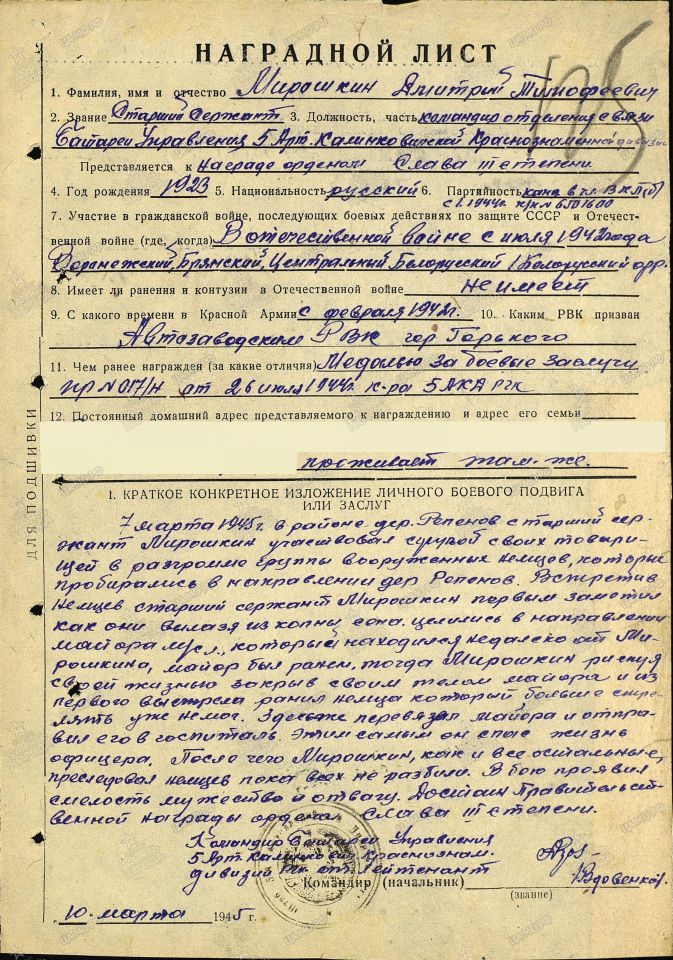 НАГРАДНОЙ ЛИСТ
1. Фамилия, имя и отчество Мирошкин Дмитрий Тимофеевич
2. Звание Старший Сержант 3. Должность, часть командир отделения связи
Батареи Управления 5 Арт. Калинковичской Краснознаменной дивизии
Представляется к Награде орденом Слава III степени
4. Год рождения 1923 5. Национальность русский 6. Партийность канд. в чл. ВКП(б)
с 1.1944г. к/к № 6501600
7. Участие в гражданской войне, последующих боевых действиях по защите СССР и Отечест-
венной войне (где, когда) В отечественной войне с июля 1942 года
Воронежский, Брянский, Центральный Белорусский 1 Белорусский
8. Имеет ли ранения и контузии в Отечественной войне не имеет
9. С какого времени в Красной Армии с февраля 1942г. 10. Каким РВК призван
Автозаводским РВК гор Горького
11. Чем ранее награжден (за какие отличия) Медалью За боевые заслуги
пр № 017/Н от 26 июля 1944г. к-ра 5 АКА РГК
12. Постоянный домашний адрес представляемого к награждению и адрес его семьи
проживает там-же.
ДЛЯ ПОДШИВКИ
I. КРАТКОЕ КОНКРЕТНОЕ ИЗЛОЖЕНИЕ ЛИЧНОГО БОЕВОГО ПОДВИГА
ИЛИ ЗАСЛУГ
7 марта 1945г. в районе дер. Репенов старший сер-
жант Мирошкин участвовал с группой своих товари-
щей в разгроме группы вооруженных немцев, которые
пробирались в направлении дер Репенов. Встретив
немцев старший сержант Мирошкин первым заметил
как они вылазя из копны сена, целились в направлении
майора м/сл., который находился недалеко от Ми-
рошкина, майор был ранен, тогда Мирошкин рискуя
своей жизнью закрыв своим телом майора и из
первого выстрела ранил немца который больше стре-
лять уже не мог. Здесь же перевязал майора и отпра-
вил его в госпиталь. Этим самым он спас жизнь
офицера. После чего Мирошкин, как и все остальные,
преследовал немцев пока всех не разбили. В бою проявил
смелость мужество и отвагу. Достоин Правительст-
венной награды ордена Слава III степени.
Командир Батареи Управления
5 Арт. Калинковичской Краснознам.
дивизии РГК ст. Лейтенант
Командир (начальник)
/Вдовенко/
(звание)
10 марта 1945 г.